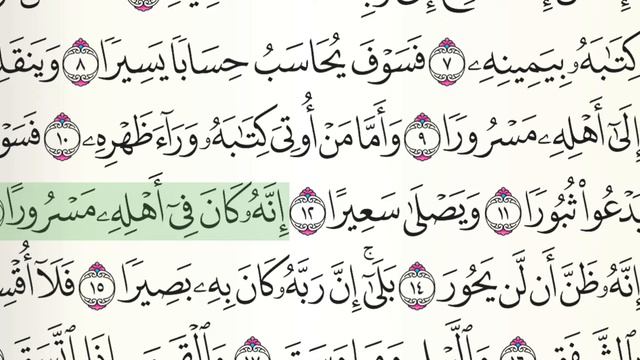 كِتَٰبَهُۥ بِيَمِينِهِۦ ٧ فَسَوْفَ يُحَاسَبُ حِسَابًا يَسِيرًا ٨ وَيَنقَلِ
إِلَىٰٓ أَهْلِهِۦ مَسْرُورًا ٩ وَأَمَّا مَنْ أُوتِىَ كِتَٰبَهُۥ وَرَآءَ ظَهْرِهِۦ ١٠ فَسَوْ
يَدْعُوا۟ ثُبُورًا ١١ وَيَصْلَىٰ سَعِيرًا ١٢ إِنَّهُۥ كَانَ فِىٓ أَهْلِهِۦ مَسْرُورًا
إِنَّهُۥ ظَنَّ أَن لَّن يَحُورَ ١٤ بَلَىٰٓ ۚ إِنَّ رَبَّهُۥ كَانَ بِهِۦ بَصِيرًا ١٥ فَلَآ أُقْسِ